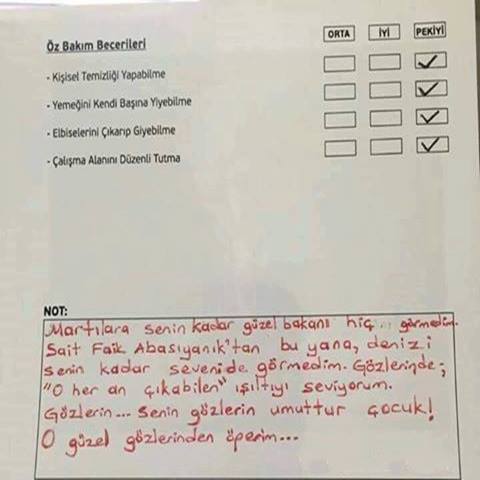 Öz Bakım Becerileri ORTA İYİ PEKİYİ
- Kişisel Temizliği Yapabilme
- Yemeğini Kendi Başına Yiyebilme
- Elbiselerini Çıkarıp Giyebilme
- Çalışma Alanını Düzenli Tutma
NOT:
Martılara senin kadar güzel bakanı hiç... görmedim.
Sait Faik Abasıyanık'tan bu yana, denizi
senin kadar sevenide görmedim. Gözlerinde;
"O her an çıkabilen" ışıltıyı seviyorum.
Gözlerin... Senin gözlerin umuttur çocuk!
O güzel gözlerinden öperim...